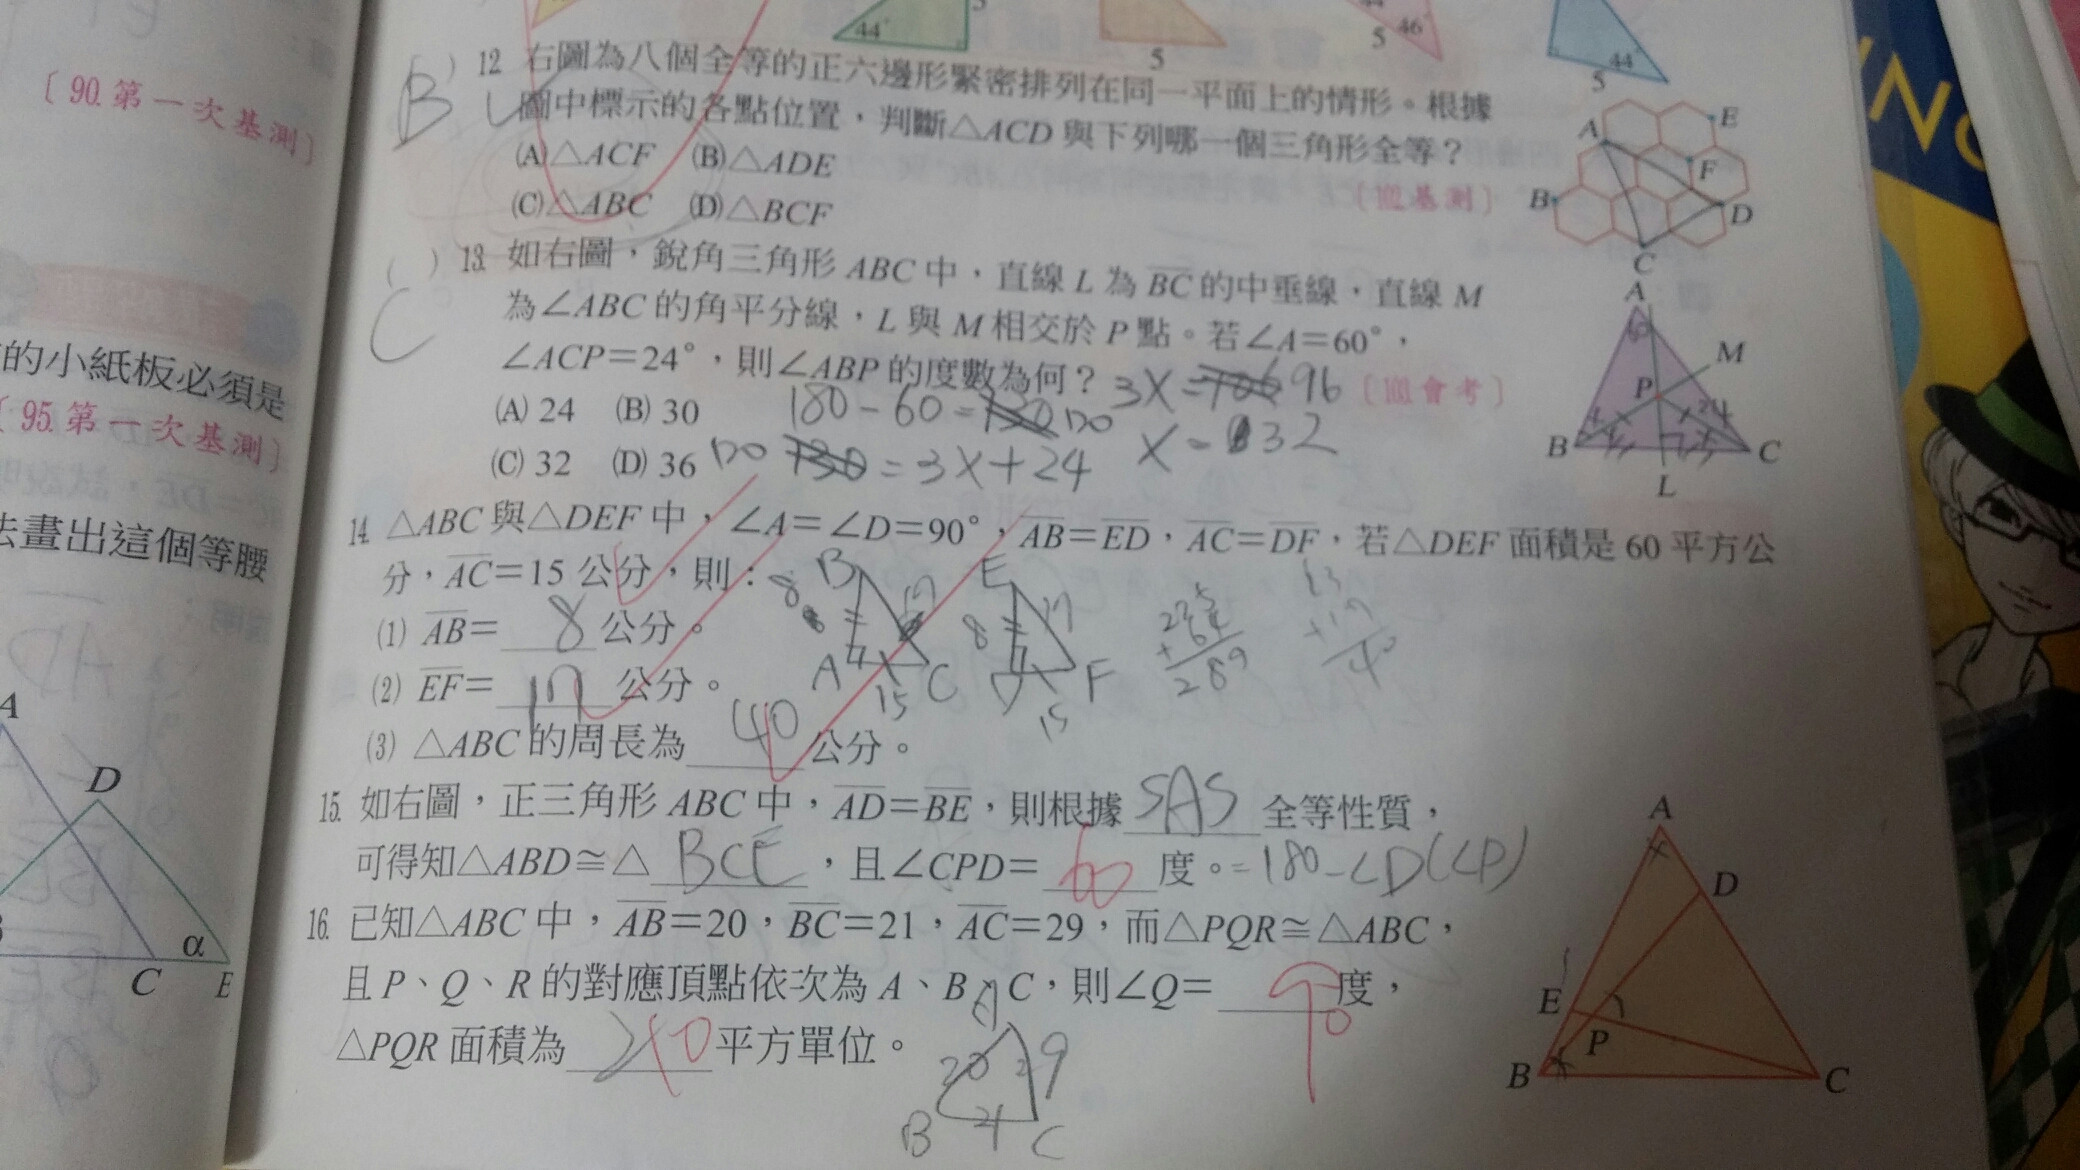 44°
5
5
44°
46°
5
44°
5
〔90.第一次基測〕
B
( ) 12. 右圖為八個全等的正六邊形緊密排列在同一平面上的情形。根據
圖中標示的各點位置,判斷△ACD 與下列哪一個三角形全等?
(A)△ACF (B)△ADE
(C)△ABC (D)△BCF
A
E
F
B
D
C
C
( ) 13. 如右圖,銳角三角形 ABC 中,直線 L 為 BC 的中垂線,直線 M
為∠ABC 的角平分線,L 與 M 相交於 P 點。若∠A=60°,
∠ACP=24°,則∠ABP 的度數為何?
(A) 24 (B) 30
(C) 32 (D) 36
180-60=120
120=3X+24
3X=96
X=32
A
60
M
P
24
B
C
L
的小紙板必須是
〔95.第一次基測〕
法畫出這個等腰
14. △ABC 與△DEF 中,∠A=∠D=90°,AB=ED,AC=DF,若△DEF 面積是 60 平方公
分,AC=15 公分,則:
(1) AB= 8 公分。
(2) EF= 17 公分。
(3) △ABC 的周長為 40 公分。
B
8
17
A
15
C
E
8
17
D
15
F
225
+64
289
23
+17
40
15. 如右圖,正三角形 ABC 中,AD=BE,則根據 SAS 全等性質,
可得知△ABD≅△ BCE ,且∠CPD= 60 度。=180-∠D(∠P)
A
D
E
P
B
C
16. 已知△ABC 中,AB=20,BC=21,AC=29,而△PQR≅△ABC,
且 P、Q、R 的對應頂點依次為 A、B、C,則∠Q= 90 度,
△PQR 面積為 210 平方單位。
A
20
29
B
21
C
A
D
α
C
E